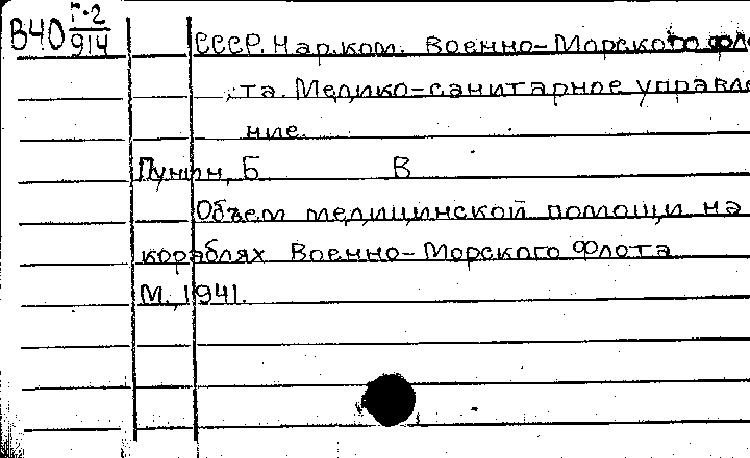 В40 Г-2/914
СССР. Нар.ком. Военно-Морского фло
та. Медико-санитарное управле
ние.
Пунин, Б В
Объем медицинской помощи на
кораблях Военно-Морского Флота
М., 1941.